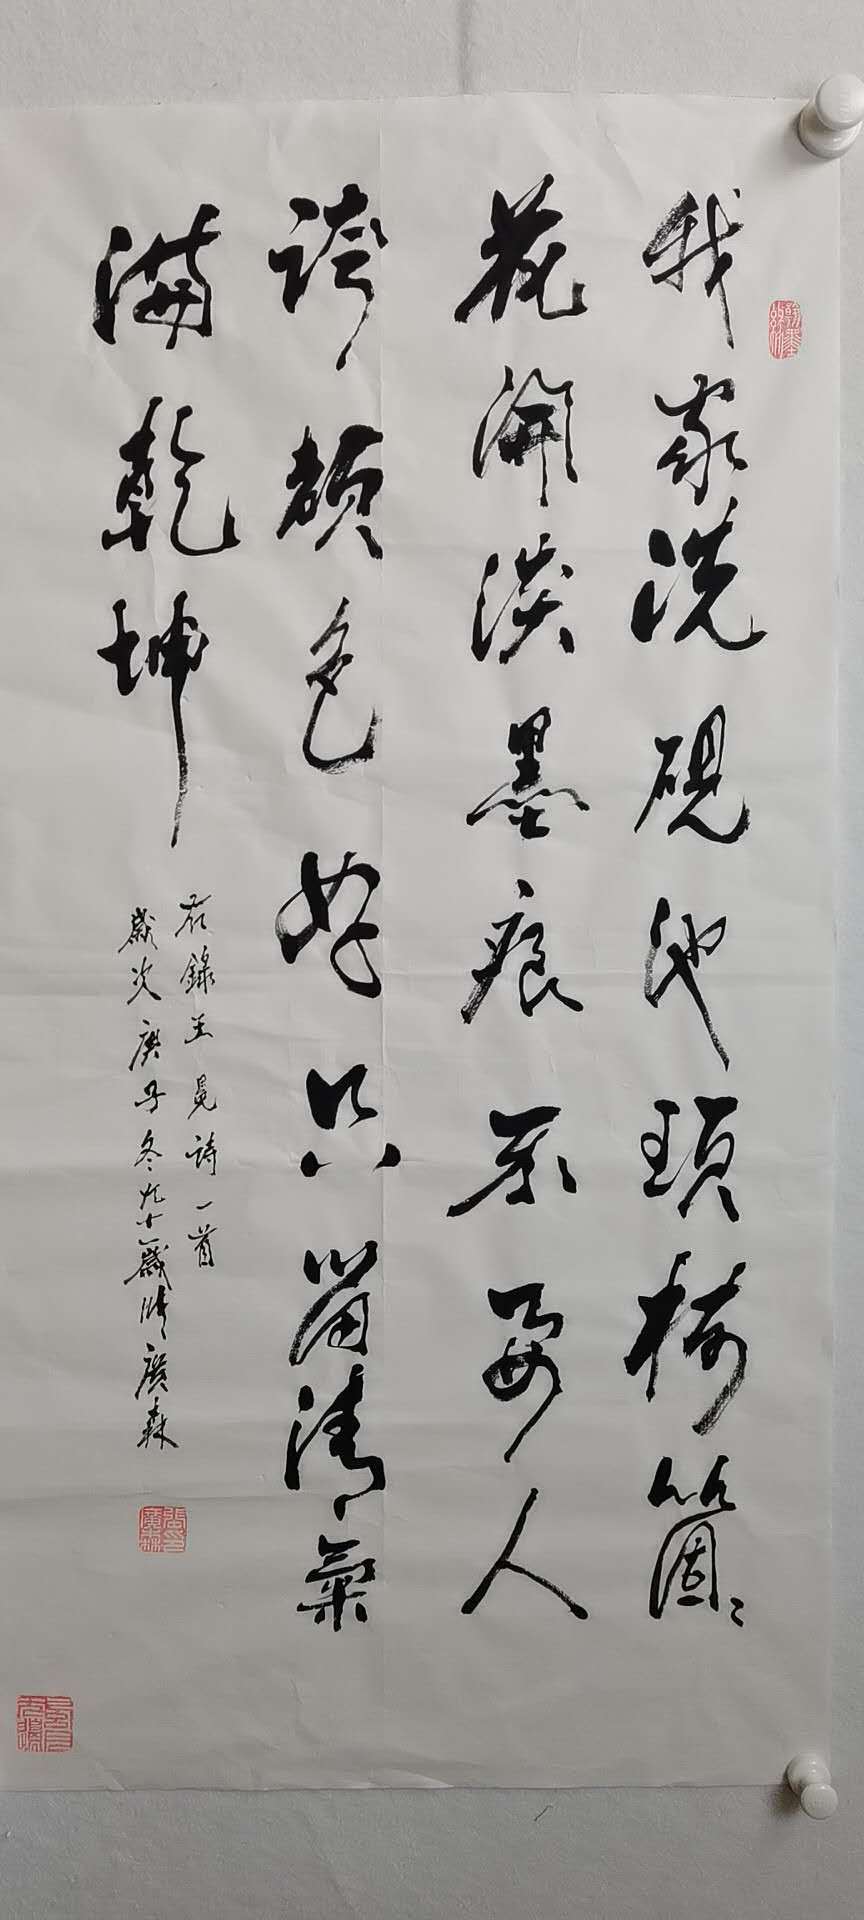 我家洗硯池頭樹箇々
花開淡墨痕不要人
誇顏色好只留清氣
滿乾坤
右錄王冕詩一首
歲次庚子冬九十一歲張廣森